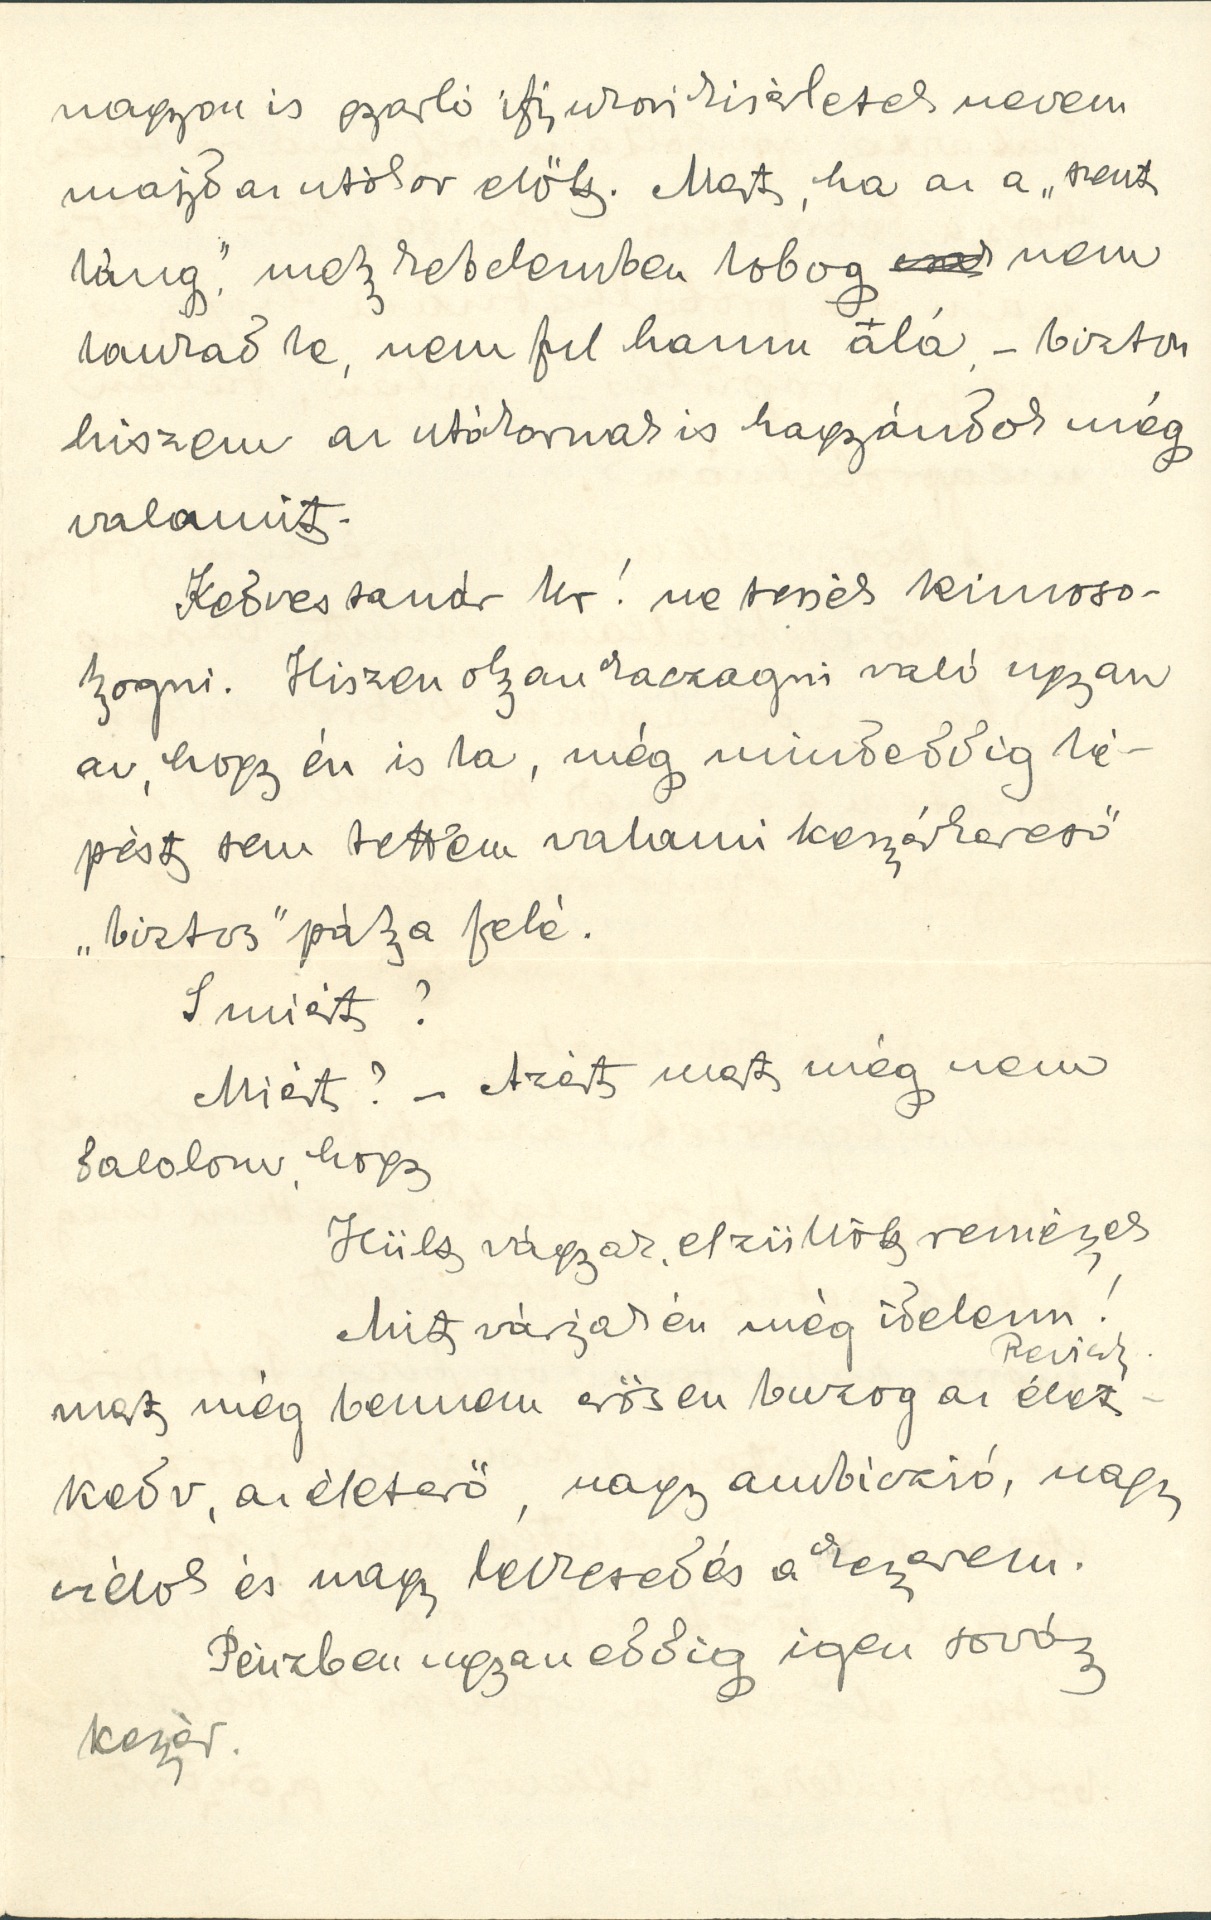 nagyon is gyarló ifjukori kisérletek nevem
majd az utókor előtt. Mert, ha az a „szent
láng”, mely kebelemben lobog nem
lankad le, nem ful hamu álá, – bizton
hiszem az utókornak is hagyándok még
valamit.
Kedves tanár Ur! ne tessék kimoso-
lyogni. Hiszen olyan kaczagni való ugyan
az, hogy én is la, még mindeddig lé-
pést sem tettem valami kenyérkereső
„biztos” pálya felé.
S miért?
Miért? – Azért mert még nem
dalolom, hogy
Hült vágyak, elzüllött remények
Mit várjak én még idelenn!
Reviczky.
mert még bennem erősen buzog az élet-
kedv, az életerő, nagy ambiczió, nagy
czélok és nagy lelkesedés a kenyerem.
Pénzben ugyan eddig igen sovány
kenyér.